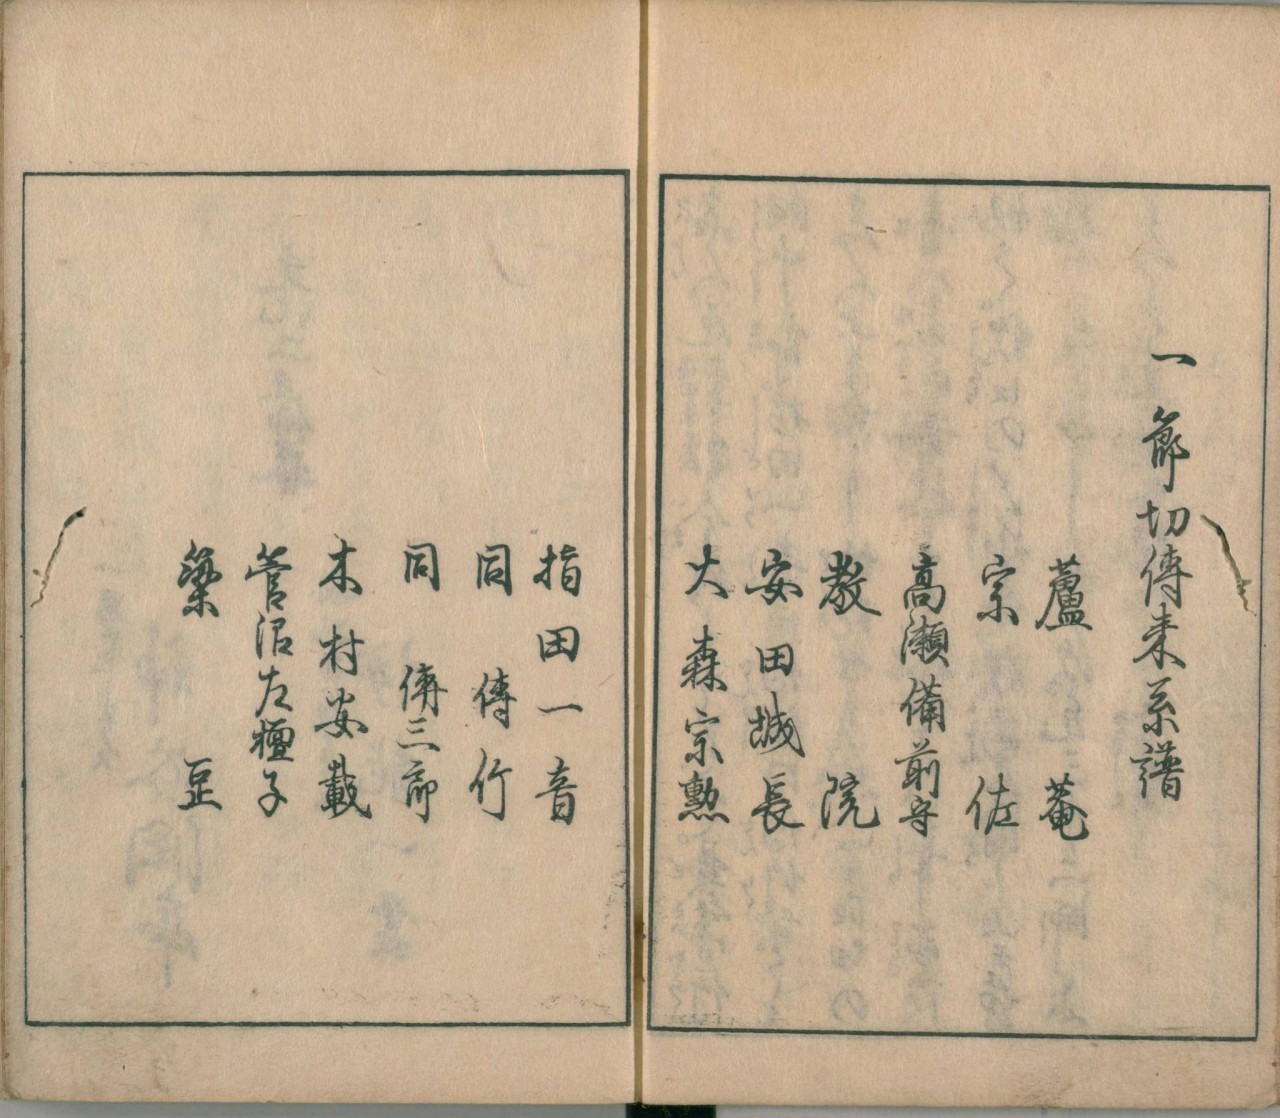 一節切傳来系譜
蘆菴
宗佐
高瀬備前守
教院
安田城長
大森宗勲
指田一音
同傳竹
同傳三郎
木村安載
菅沼左檀子
築豆